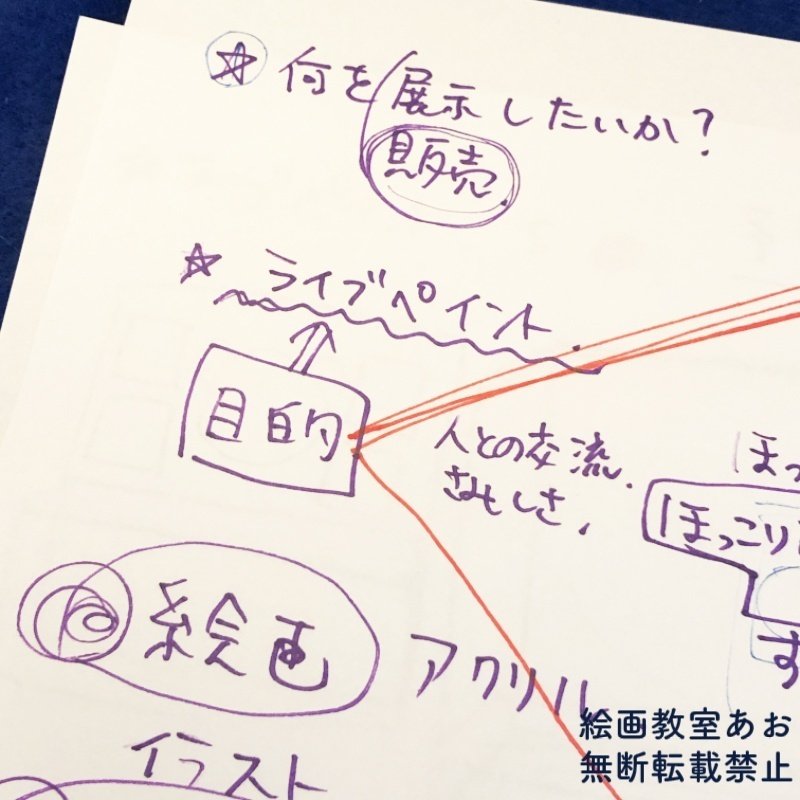 何を展示したいか?
販売
ライブペイント
目的
人との交流.
ほっ
ほっこり
す
絵画
アクリル
イラスト
絵画教室あお
無断転載禁止